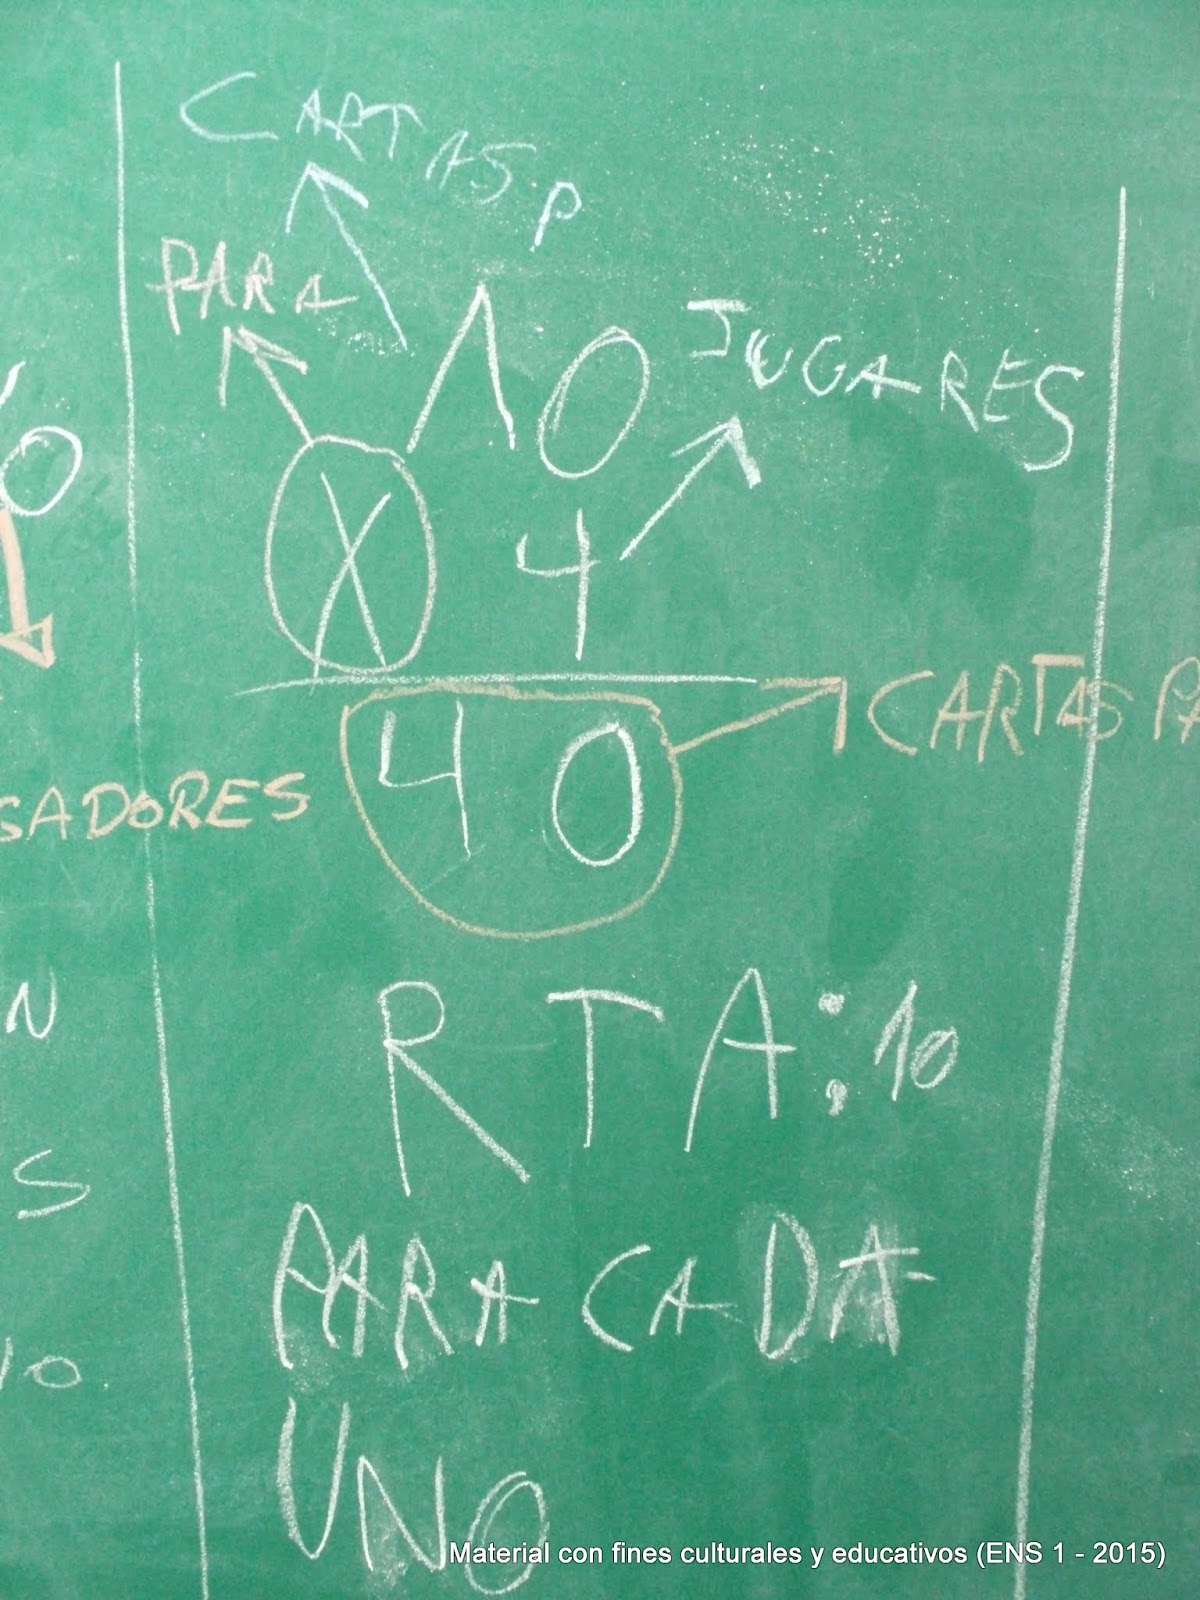 CARTAS P
PARA
10
JUGARES
X 4
40
CARTAS PA
GADORES
RTA: 10
PARA CADA
UNO
N
S
NO
O
Material con fines culturales y educativos (ENS 1 - 2015)